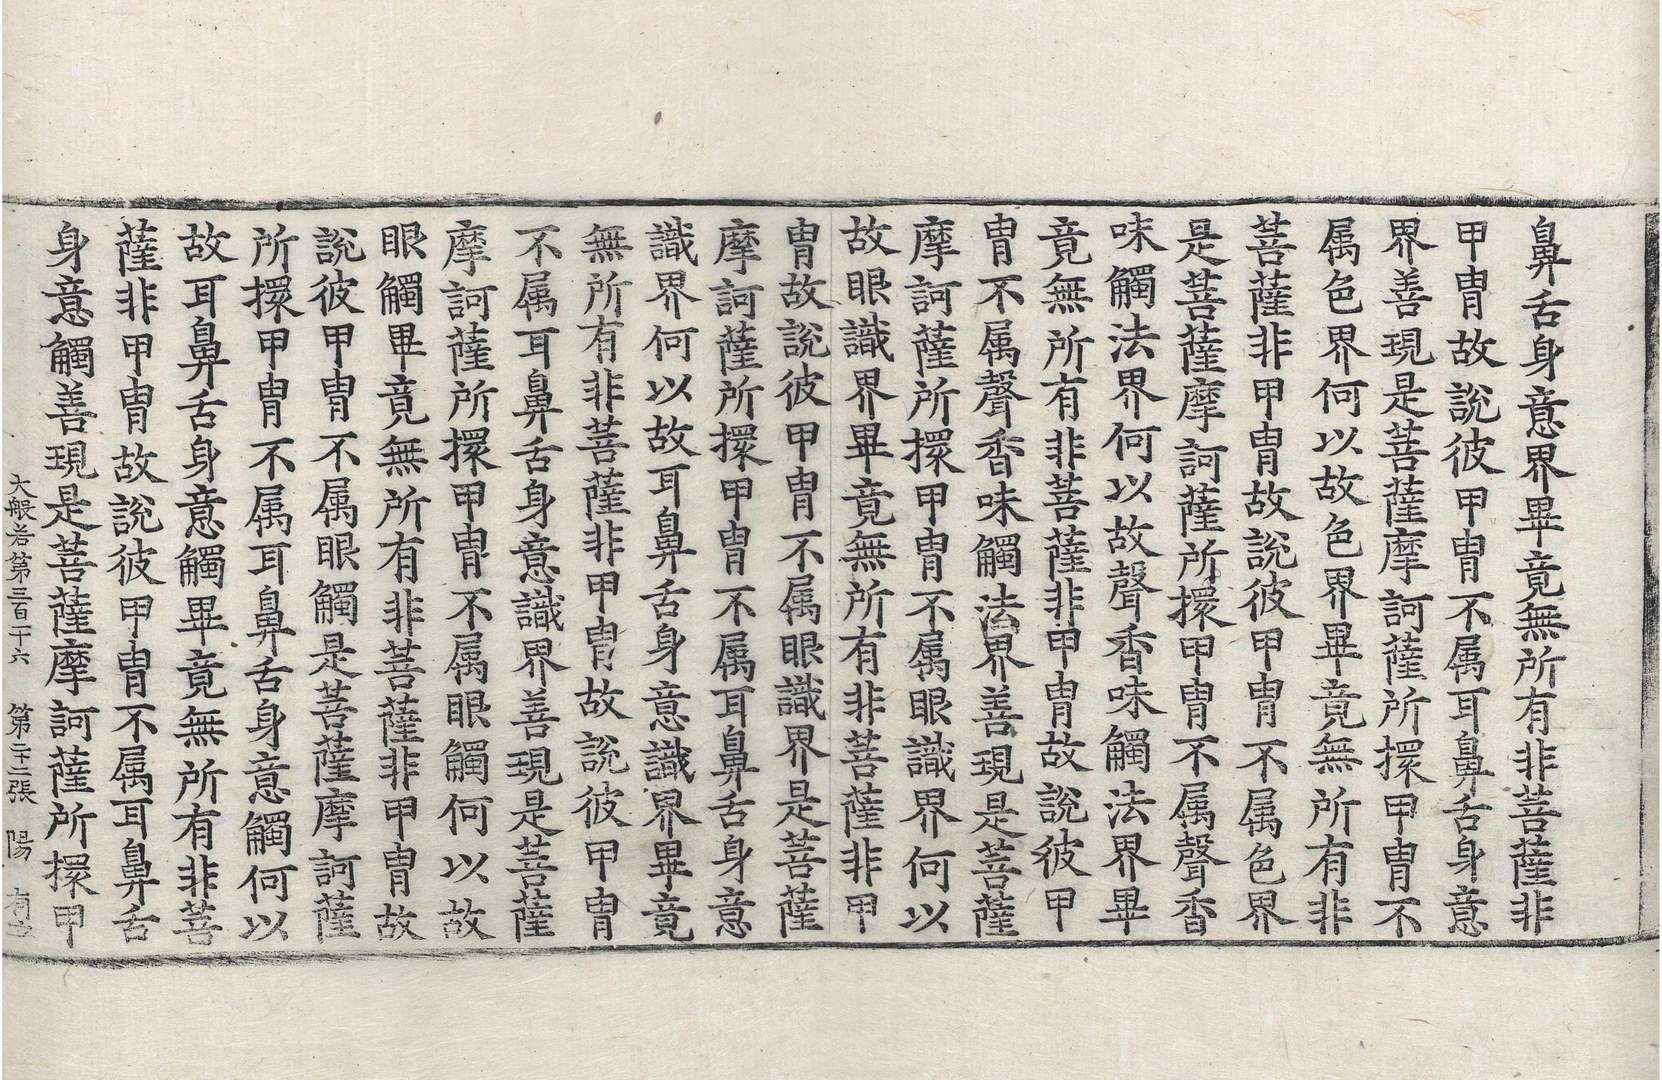 鼻舌身意界畢竟無所有非菩薩非
甲冑故說彼甲冑不属耳鼻舌身意
界善現是菩薩摩訶薩所擐甲冑不
属色界何以故色界畢竟無所有非
菩薩非甲冑故說彼甲冑不属色界
是菩薩摩訶薩所擐甲冑不属聲香
味觸法界何以故聲香味觸法界畢
竟無所有非菩薩非甲冑故說彼甲
冑不属聲香味觸法界善現是菩薩
摩訶薩所擐甲冑不属眼識界何以
故眼識界畢竟無所有非菩薩非甲
冑故說彼甲冑不属眼識界是菩薩
摩訶薩所擐甲冑不属耳鼻舌身意
識界何以故耳鼻舌身意識界畢竟
無所有非菩薩非甲冑故說彼甲冑
不属耳鼻舌身意識界善現是菩薩
摩訶薩所擐甲冑不属眼觸何以故
眼觸畢竟無所有非菩薩非甲冑故
說彼甲冑不属眼觸是菩薩摩訶薩
所擐甲冑不属耳鼻舌身意觸何以
故耳鼻舌身意觸畢竟無所有非菩
薩非甲冑故說彼甲冑不属耳鼻舌
身意觸善現是菩薩摩訶薩所擐甲
大般若第三百十六 第二十二張 陽